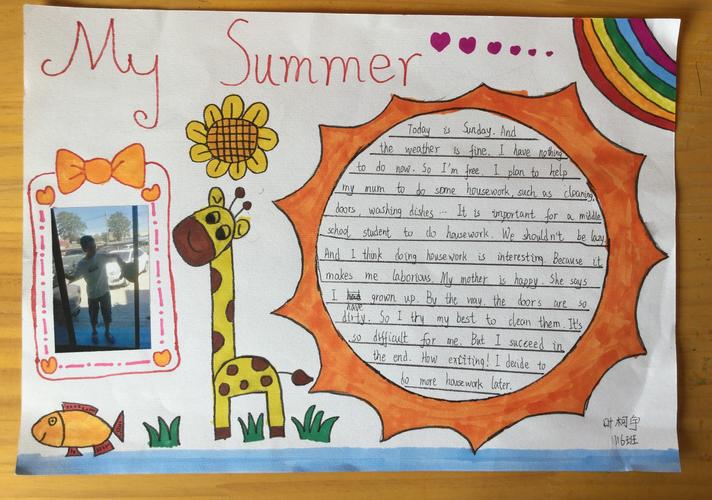 My Summer
Today is Sunday. And
the weather is fine. I have nothing
to do now. So I'm free. I plan to help
my mum to do some housework, such as cleaning
doors, washing dishes ... It is important for a middle
school student to do housework. We shouldn't be lazy
And I think doing housework is interesting. Because it
makes me laborious. My mother is happy. She says
I have grown up. By the way, the doors are so
dirty. So I try my best to clean them. It's
so difficult for me. But I succeed in
the end. How exciting! I decide to
do more housework later.
叶柯宇
116班